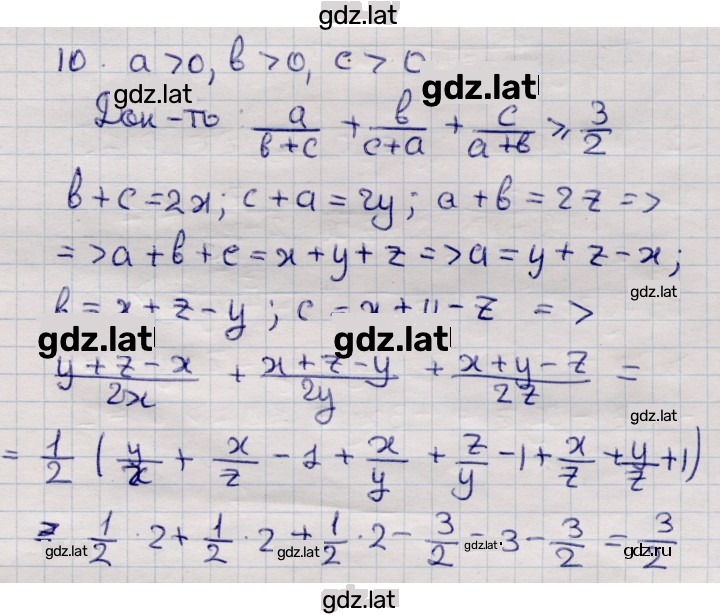 gdz.lat
10. a > 0, в > 0, c > 0
gdz.lat gdz.lat
Док-ть a/(в+c) + в/(c+a) + c/(a+в) ⩾ 3/2
в + c = 2x; c + a = 2y; a + в = 2z =>
=> a + в + c = x + y + z => a = y + z - x;
gdz.lat
в = x + z - y; c = x + y - z =>
gdz.lat gdz.lat
(y + z - x)/2x + (x + z - y)/2y + (x + y - z)/2z =
gdz.lat
= 1/2 (y/x + x/z - 1 + x/y + z/y - 1 + x/z + y/z + 1)
⩾ 1/2 · 2 + 1/2 · 2 + 1/2 · 2 - 3/2 = 3 - 3/2 = 3/2
gdz.lat gdz.lat gdz.lat gdz.ru
gdz.lat